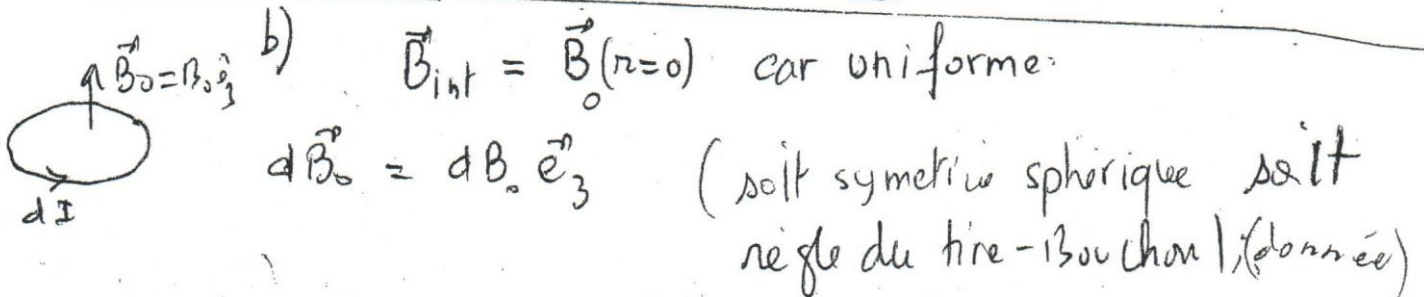 b) B⃗int = B⃗₀(r=0) car uniforme.
B⃗₀ = B₀ e⃗₃
dI
dB⃗₀ = dB₀ e⃗₃ (soit symetrie spherique soit
règle du tire-Bouchon), (donnée)